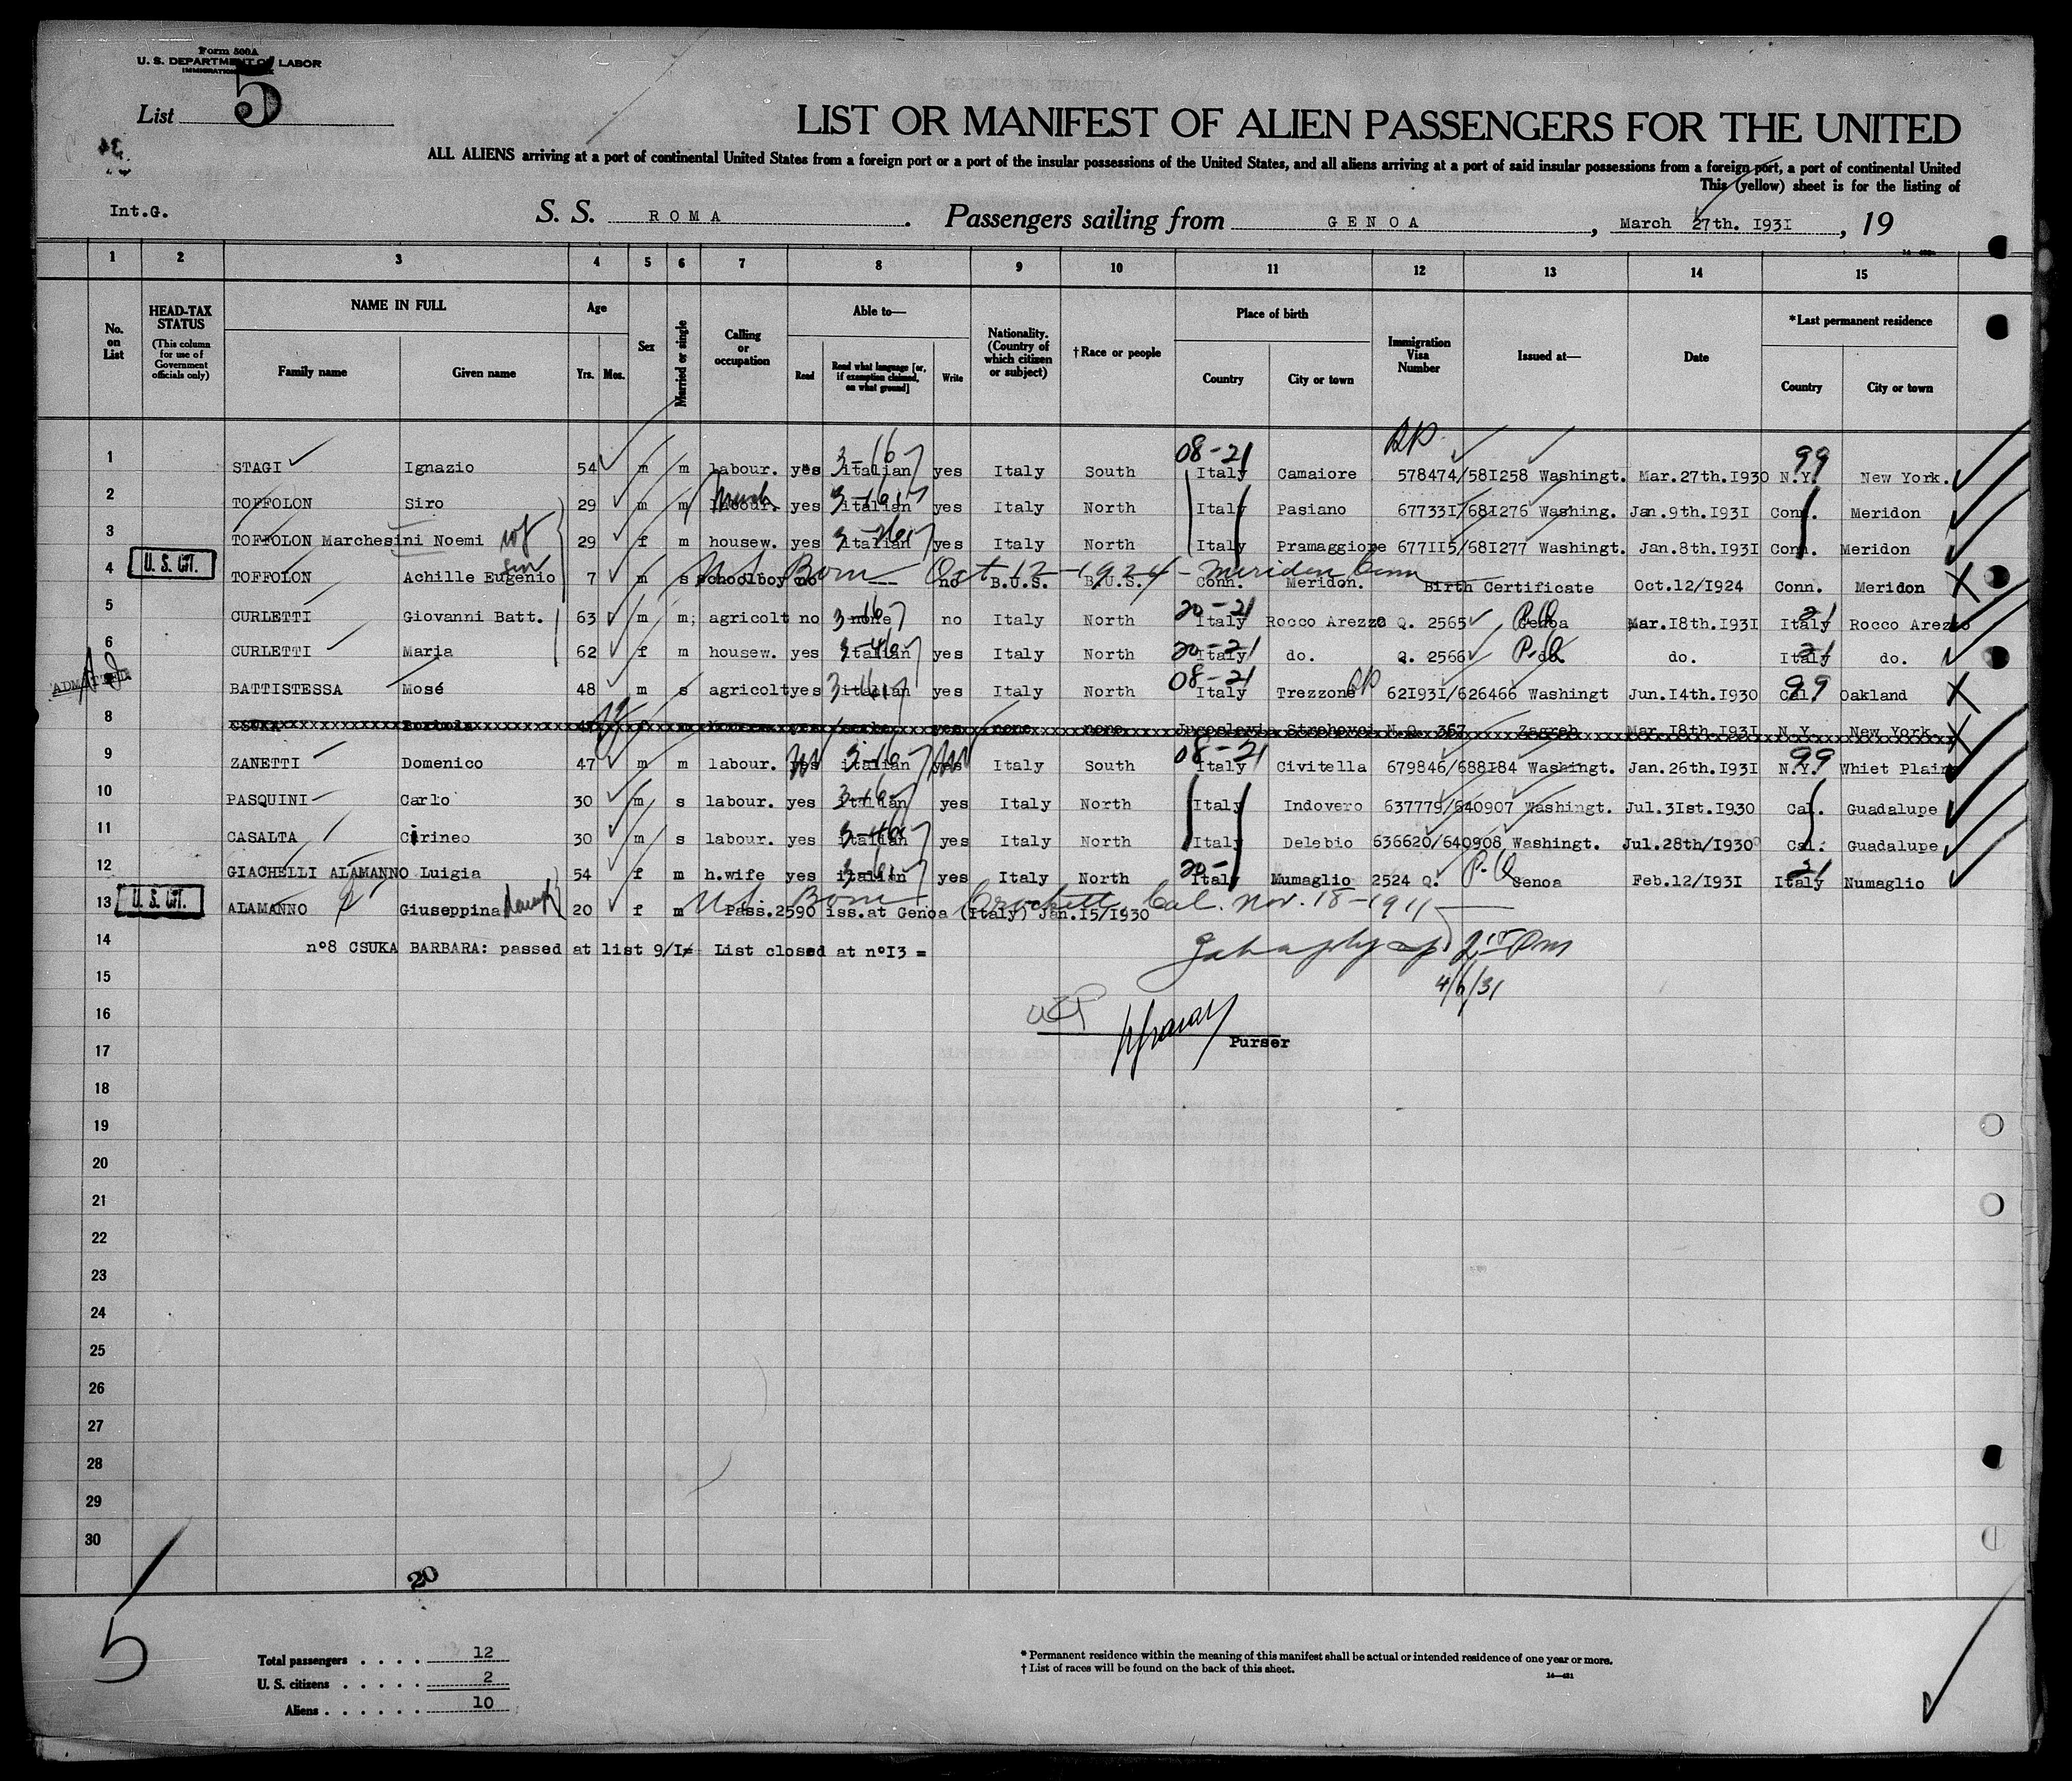 Form 500A
U. S. DEPARTMENT OF LABOR
List 5
LIST OR MANIFEST OF ALIEN PASSENGERS FOR THE UNITED
ALL ALIENS arriving at a port of continental United States from a foreign port or a port of the insular possessions of the United States, and all aliens arriving at a port of said insular possessions from a foreign port, a port of continental United
This (yellow) sheet is for the listing of
Int.G.
S. S. ROMA. Passengers sailing from GENOA, March 27th. 1931, 19
1 2 3 4 5 6 7 8 9 10 11 12 13 14 15
No. on List
HEAD-TAX STATUS (This column for use of Government officials only)
NAME IN FULL
Family name Given name
Age
Yrs. Mos.
Sex
Married or single
Calling or occupation
Able to—
Read Read what language [or, if exemption claimed, on what ground] Write
Nationality. (Country of which citizen or subject)
†Race or people
Place of birth
Country City or town
Immigration Visa Number
Issued at—
Date
*Last permanent residence
Country City or town
1 STAGI Ignazio 54 m m labour. yes italian yes Italy South 08-21 Italy Camaiore 578474/581258 Washingt. Mar.27th.1930 99 N.Y. New York.
2 TOFFOLON Siro 29 m m labour. yes italian yes Italy North Italy Pasiano 677331/681276 Washing. Jan.9th.1931 Conn. Meridon
3 TOFFOLON Marchesini Noemi wf 29 f m housew. yes italian yes Italy North Italy Pramaggiore 677115/681277 Washingt. Jan.8th.1931 Conn. Meridon
U. S. CIT. 4 TOFFOLON Achille Eugenio 7 m s schoolboy no --- no B.U.S. B.U.S. Conn. Meridon. Birth Certificate Oct.12/1924 Conn. Meridon
U.S. Born Oct 12-1924 - Meriden Conn
5 CURLETTI Giovanni Batt. 63 m m; agricolt no none no Italy North 20-21 Italy Rocco Arezzo Q. 2565 Genoa Mar.18th.1931 21 Italy Rocco Arezzo
6 CURLETTI Maria 62 f m housew. yes italian yes Italy North 20-21 Italy do. Q. 2566 do. do. 21 Italy do.
ADMITTED BATTISTESSA Mosé 48 m s agricolt yes italian yes Italy North 08-21 Italy Trezzone 621931/626466 Washingt Jun.14th.1930 99 Cal. Oakland
8 CSUKA f m yes yes none none Jugoslavia Strehovci N.Q. 367 Zagreb Mar.18th.1931 N.Y. New York
9 ZANETTI Domenico 47 m m labour. yes italian yes Italy South 08-21 Italy Civitella 679846/688184 Washingt. Jan.26th.1931 99 N.Y. Whiet Plain
10 PASQUINI Carlo 30 m s labour. yes italian yes Italy North Italy Indovero 637779/640907 Washingt. Jul.31st.1930 Cal. Guadalupe
11 CASALTA Cirineo 30 m s labour. yes italian yes Italy North Italy Delebio 636620/640908 Washingt. Jul.28th/1930 Cal. Guadalupe
12 GIACHELLI ALAMANNO Luigia 54 f m h.wife yes italian yes Italy North Italy Mumaglio 2524 Q. Genoa Feb.12/1931 21 Italy Numaglio
U. S. CIT. 13 ALAMANNO Giuseppina 20 f m Pass.2590 iss.at Genoa (Italy) Jan.15/1930
U.S. Born Crockett, Cal. Nov. 18-1911
14 n°8 CSUKA BARBARA: passed at list 9/1= List closed at n°13 =
15 4/6/31
16
17 Purser
18
19
20
21
22
23
24
25
26
27
28
29
30
20
5
Total passengers . . . . 12
U. S. citizens . . . . . 2
Aliens . . . . . . 10
* Permanent residence within the meaning of this manifest shall be actual or intended residence of one year or more.
† List of races will be found on the back of this sheet.